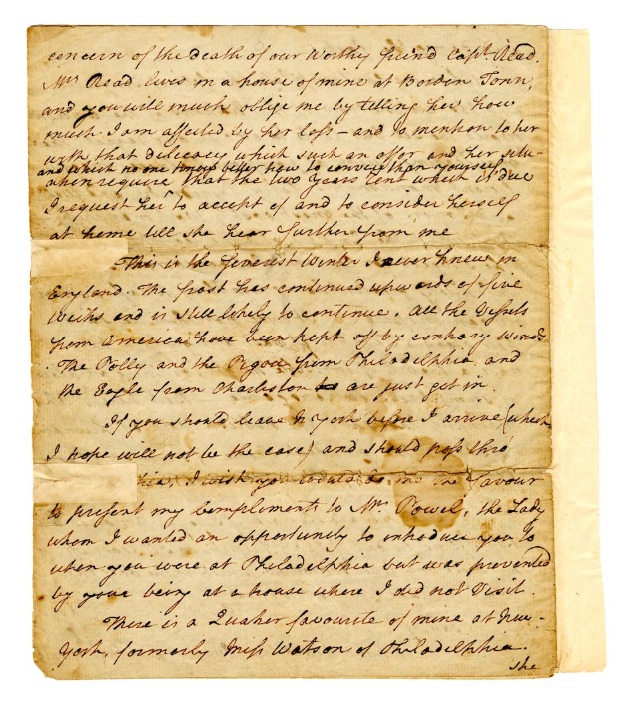 concern of the death of our worthy friend Capt. Read.
Mrs Read lives in a house of mine at Borden Town,
and you will much oblige me by telling her how
much I am affected by her loss – and to mention to her
with that delicacy which such an offer and her situ-
and which no one knows better how to convey than yourself
ation require that the two years rent which is due
I request her to accept of and to consider herself
at home till she hear further from me
This is the severest Winter I ever knew in
England. The frost has continued upwards of five
Weeks and is still likely to continue. All the Vessels
from america have been kept off by contrary winds
The Polly and the Pigou from Philadelphia and
the Eagle from Charleston are just got in.
If you should leave N York before I arrive (which
I hope will not be the case) and should pass thro'
hia, I wish you would do me the favour
to present my compliments to Mrs. Powel, the Lady
whom I wanted an opportunity to introduce you to
when you were at Philadelphia but was prevented
by your being at a house where I did not visit.
There is a Quaker favourite of mine at New-
York, formerly Miss Watson of Philadelphia.
she